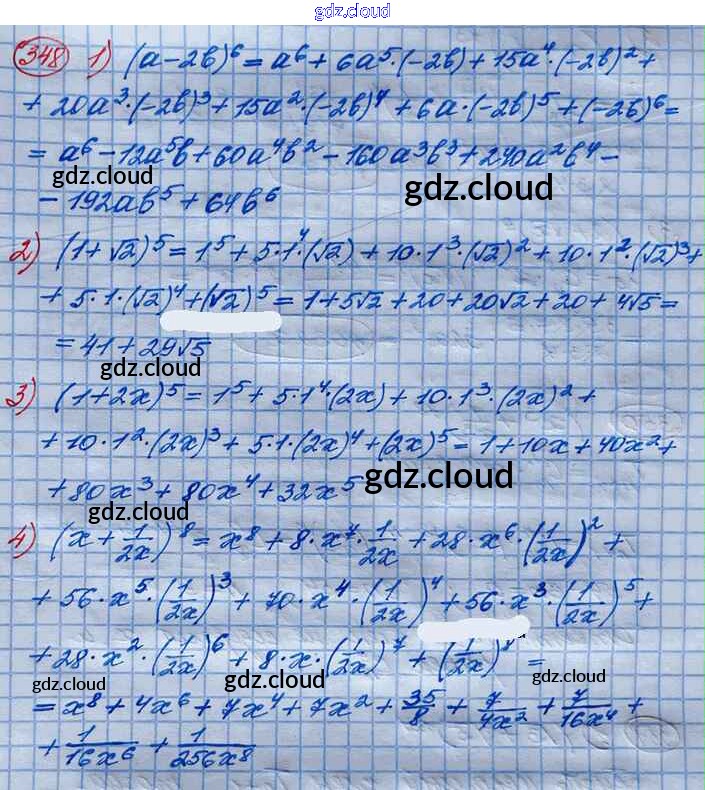 gdz.cloud
348 1) (a-2b)⁶ = a⁶ + 6a⁵·(-2b) + 15a⁴·(-2b)² +
+ 20a³·(-2b)³ + 15a²·(-2b)⁴ + 6a·(-2b)⁵ + (-2b)⁶ =
= a⁶ - 12a⁵b + 60a⁴b² - 160a³b³ + 240a²b⁴ -
gdz.cloud gdz.cloud
- 192ab⁵ + 64b⁶
2) (1+√2)⁵ = 1⁵ + 5·1⁴·(√2) + 10·1³·(√2)² + 10·1²·(√2)³ +
+ 5·1·(√2)⁴ + (√2)⁵ = 1 + 5√2 + 20 + 20√2 + 20 + 4√5 =
= 41 + 29√5
gdz.cloud gdz.cloud
3) (1+2x)⁵ = 1⁵ + 5·1⁴·(2x) + 10·1³·(2x)² +
+ 10·1²·(2x)³ + 5·1·(2x)⁴ + (2x)⁵ = 1 + 10x + 40x² +
gdz.cloud
+ 80x³ + 80x⁴ + 32x⁵
gdz.cloud
4) (x + 1/2x)⁸ = x⁸ + 8·x⁷·1/2x + 28·x⁶·(1/2x)² +
+ 56·x⁵·(1/2x)³ + 70·x⁴·(1/2x)⁴ + 56·x³·(1/2x)⁵ +
+ 28·x²·(1/2x)⁶ + 8·x·(1/2x)⁷ + (1/2x)⁸ =
gdz.cloud gdz.cloud
= x⁸ + 4x⁶ + 7x⁴ + 7x² + 35/8 + 7/4x² + 7/16x⁴ +
+ 1/16x⁶ + 1/256x⁸